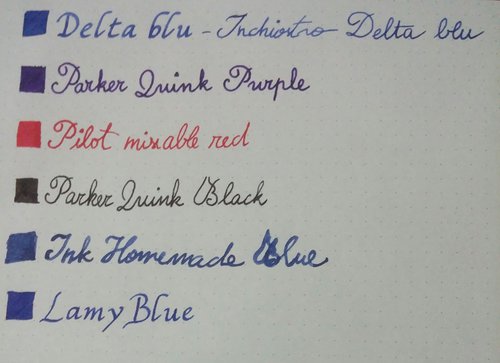 Delta blu - Inchiostro Delta blu
Parker Quink Purple
Pilot mixable red
Parker Quink Black
Ink Homemade Blue
Lamy Blue